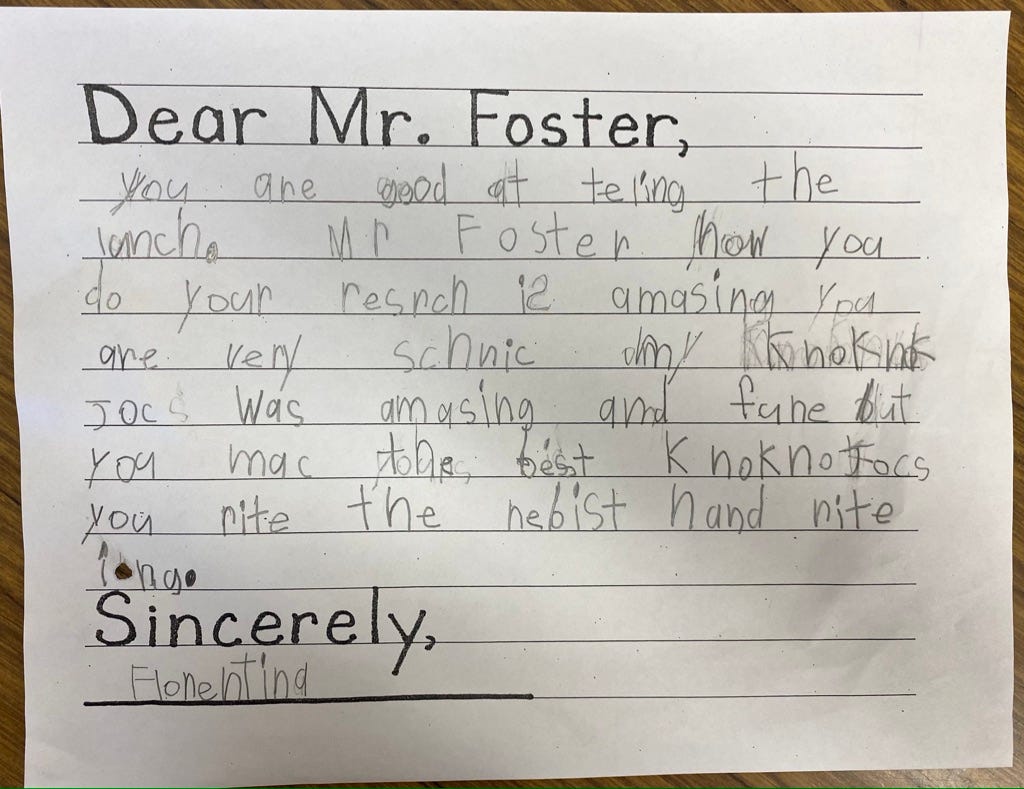 Dear Mr. Foster,
you are good at teling the
lunch. Mr Foster how you
do your resrch is amasing you
are very schnic my knoknok
Jocs was amasing and fune but
you mac the best KnoknoJocs
you rite the nebist hand rite
ing.
Sincerely,
Florentina